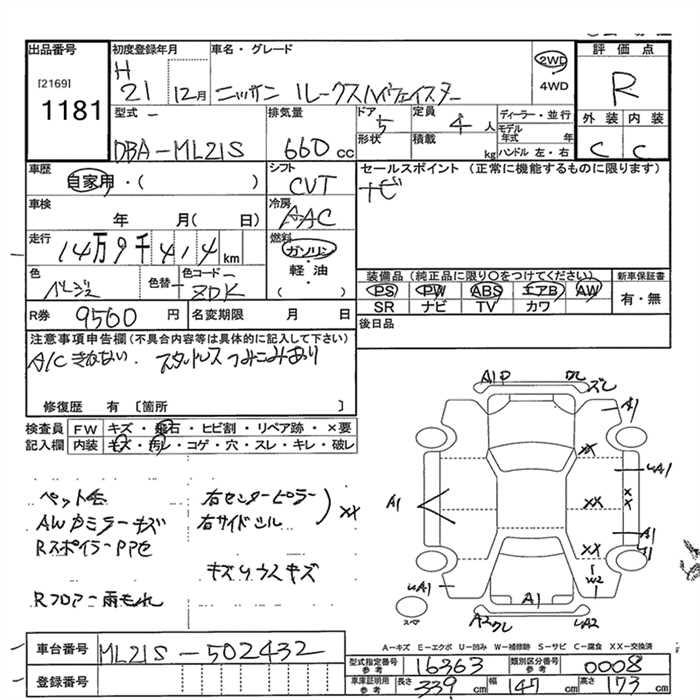 出品番号
[2169]
1181
初度登録年月
H
21
12月
車名・グレード
ニッサン ルークスハイウェイスター
2WD
4WD
評価点
R
外装 内装
C C
型式
DBA-ML21S
排気量
660 cc
ドア
5
形状
定員
4人
積載
kg
ディーラー・並行
モデル年式 年
ハンドル 左・右
車歴
自家用・( )
シフト
CVT
セールスポイント (正常に機能するものに限ります)
ナビ
車検
年 月( 日)
冷房
AAC
走行
14万9千414km
燃料
ガソリン
・
軽・油
・
( )
色
ベージュ
色替
色コード
ZDK
装備品 (純正品に限り○をつけてください)
PS PW ABS エアB AW
SR ナビ TV カワ
新車保証書
有・無
R券
9560円
名変期限 月 日
後日品
注意事項申告欄(不具合内容等は具体的に記入して下さい)
A/C きかない スタッドレスつみこみあり
修復歴 有 〔箇所 〕
検査員
記入欄
FW キズ・飛石・ヒビ割・リペア跡・×要
内装 キズ・汚レ・コゲ・穴・スレ・キレ・破レ
ペット毛
AWカミラーキズ
RスポイラーPP色
Rフロアー雨もれ
右センターピラー
右サイドシル
XX
キズソウスキズ
A1P
ズレ
A1
XX
A1
XX
XX
A1
XX
A1
W2
A1
A2
UA2
スペア
車台番号
ML21S-502432
登録番号
A-キズ E-エクボ U-凹み W-補修跡 S-サビ C-腐食 XX-交換済
型式指定番号
参考
16363
類別区分番号
参考
0008
車庫証明用
参考
長さ 339cm
幅 147cm
高さ 173cm